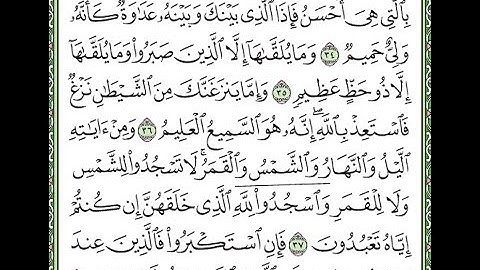 بِٱلَّتِى هِىَ أَحْسَنُ فَإِذَا ٱلَّذِى بَيْنَكَ وَبَيْنَهُۥ عَدَٰوَةٌ كَأَنَّهُۥ
وَلِىٌّ حَمِيمٌ ٣٤ وَمَا يُلَقَّىٰهَآ إِلَّا ٱلَّذِينَ صَبَرُوا۟ وَمَا يُلَقَّىٰهَآ
إِلَّا ذُو حَظٍّ عَظِيمٍ ٣٥ وَإِمَّا يَنزَغَنَّكَ مِنَ ٱلشَّيْطَٰنِ نَزْغٌ
فَٱسْتَعِذْ بِٱللَّهِ ۖ إِنَّهُۥ هُوَ ٱلسَّمِيعُ ٱلْعَلِيمُ ٣٦ وَمِنْ ءَايَٰتِهِ
ٱلَّيْلُ وَٱلنَّهَارُ وَٱلشَّمْسُ وَٱلْقَمَرُ ۚ لَا تَسْجُدُوا۟ لِلشَّمْسِ
وَلَا لِلْقَمَرِ وَٱسْجُدُوا۟ لِلَّهِ ٱلَّذِى خَلَقَهُنَّ إِن كُنتُمْ
إِيَّاهُ تَعْبُدُونَ ٣٧ فَإِنِ ٱسْتَكْبَرُوا۟ فَٱلَّذِينَ عِندَ